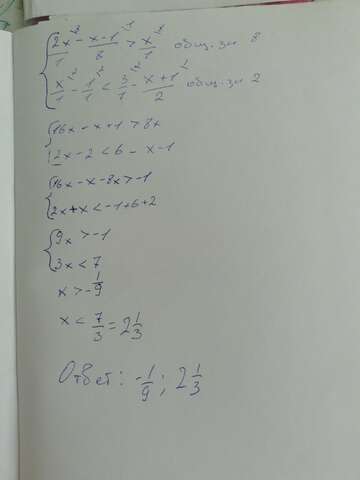 2x/1 - x-1/8 > x/1 общ.зн 8
x/1 - 1/1 < 3/1 - x+1/2 общ.зн 2
16x - x + 1 > 8x
2x - 2 < 6 - x - 1
16x - x - 8x > -1
2x + x < -1 + 6 + 2
9x > -1
3x < 7
x > - 1/9
x < 7/3 = 2 1/3
Ответ: -1/9 ; 2 1/3